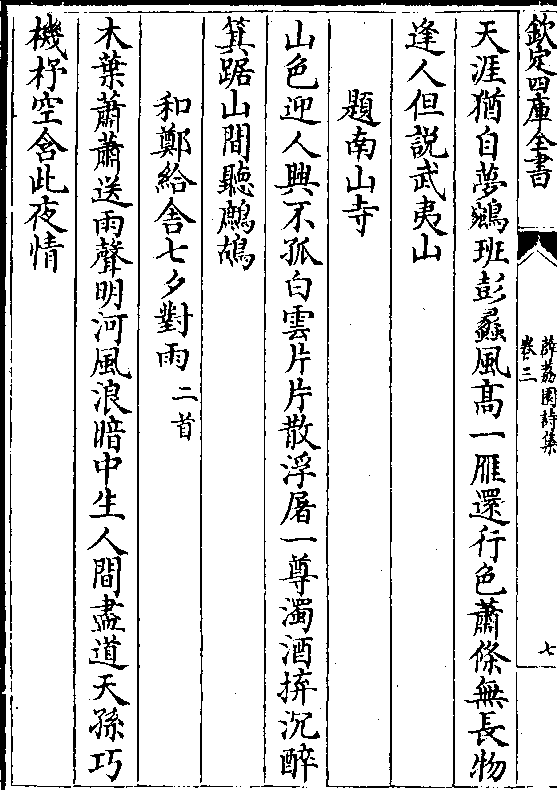 欽定四庫全書
薜荔園詩集
卷三
七
天涯猶自夢鵷班彭蠡風高一雁還行色蕭條無長物
逢人但說武夷山
題南山寺
山色迎人興不孤白雲片片散浮屠一尊濁酒拚沉醉
箕踞山間聽鷓鴣
和鄭給舍七夕對雨二首
木葉蕭蕭送雨聲明河風浪暗中生人間盡道天孫巧
機杼空含此夜情